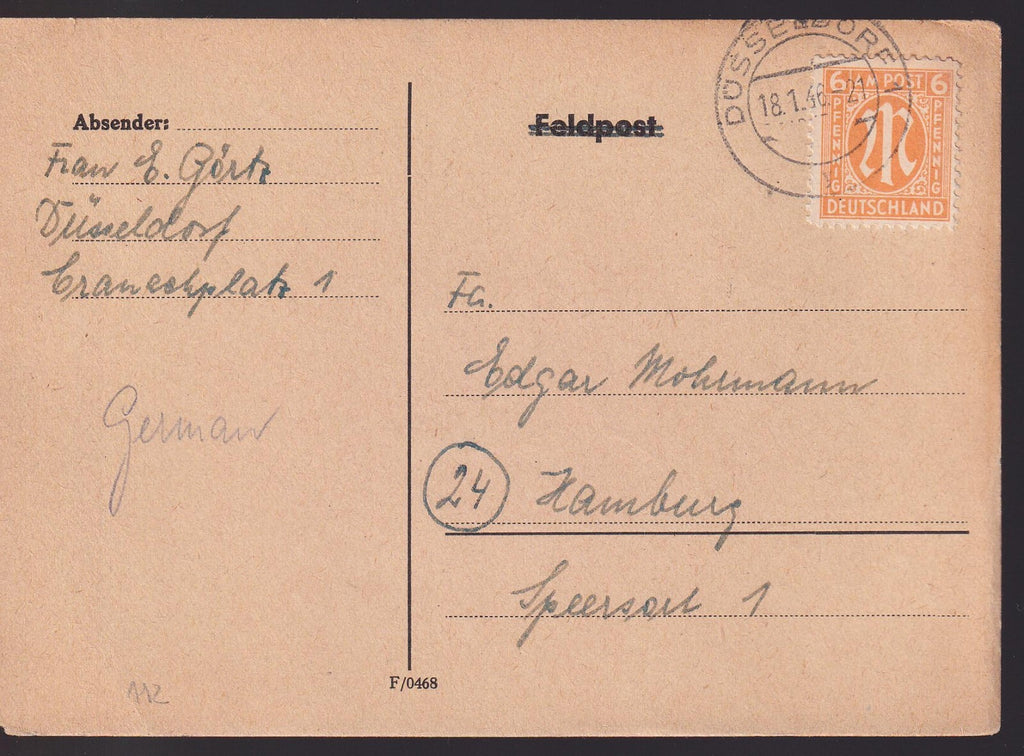 Absender:
Frau E. Görtz
Düsseldorf
Cranachplatz 1
German
112
Feldpost
DÜSSELDORF
18.1.46.-21
6 AM POST 6
PFENNIG
PFENNIG
DEUTSCHLAND
Fa.
Edgar Mohrmann
24 Hamburg
Speersort 1
F/0468